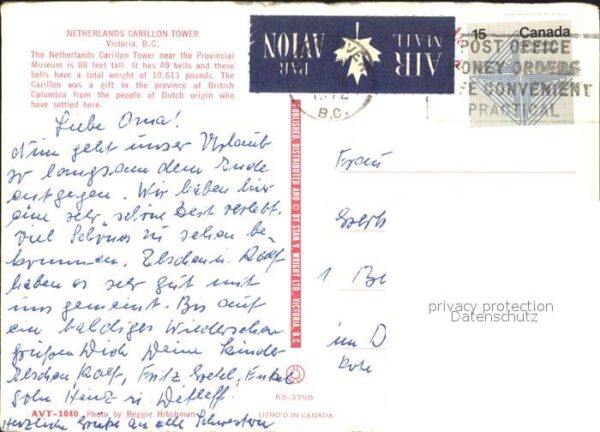 NETHERLANDS CARILLON TOWER
Victoria, B.C.
The Netherlands Carillon Tower near the Provincial
Museum is 88 feet tall. It has 49 bells and these
bells have a total weight of 10,613 pounds. The
Carillon was a gift to the province of British
Columbia from the people of Dutch origin who
have settled here.
Liebe Oma!
Nun geht unser Urlaub
so langsam dem Ende
entgegen. Wir haben hier
eine sehr schöne Zeit verlebt.
Viel Schönes zu sehen be-
kommen. Elschen u. Rolf
haben es sehr gut mit
uns gemeint. Bis auf
ein baldiges Wiedersehen
grüßen Dich Deine Kinder
Elschen, Rolf, Fritz, Enkel
sohn Heinz u. Detleff.
Herzliche Grüße an alle Schwestern
AVT-1040 Photo by Reggie Hibshman
KS-3750
LITHO'D IN CANADA
PUBLISHED DISTRIBUTED AND © BY STAN V. WRIGHT LTD. VICTORIA, B.C.
PAR AVION
AIR MAIL
B.C.
15 Canada
POST OFFICE
MONEY ORDERS
CONVENIENT
PRACTICAL
Frau
1 Be
im D
privacy protection
Datenschutz